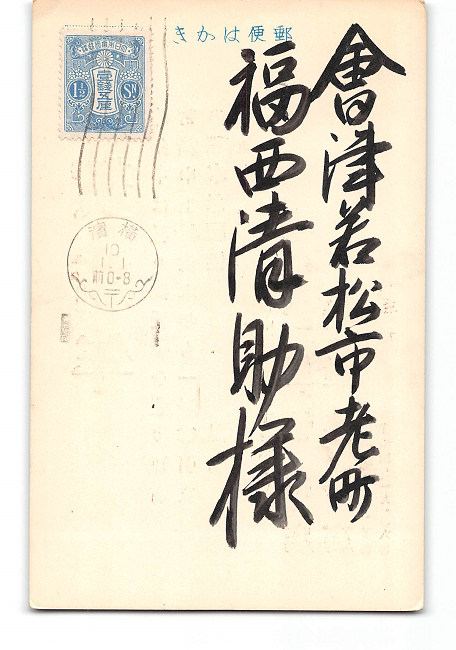 郵便はかき
會津若松市老町
福西清助様
大日本帝國郵便
壹錢五厘
1½ Sn
横濱
10
1.1
前0-8